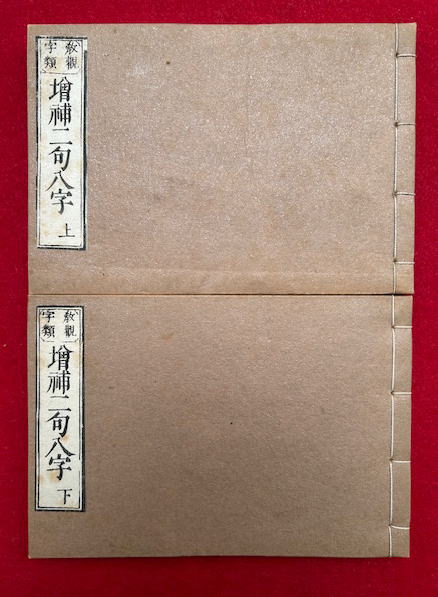 教觀
字類
增補二句八字
上
教觀
字類
增補二句八字
下